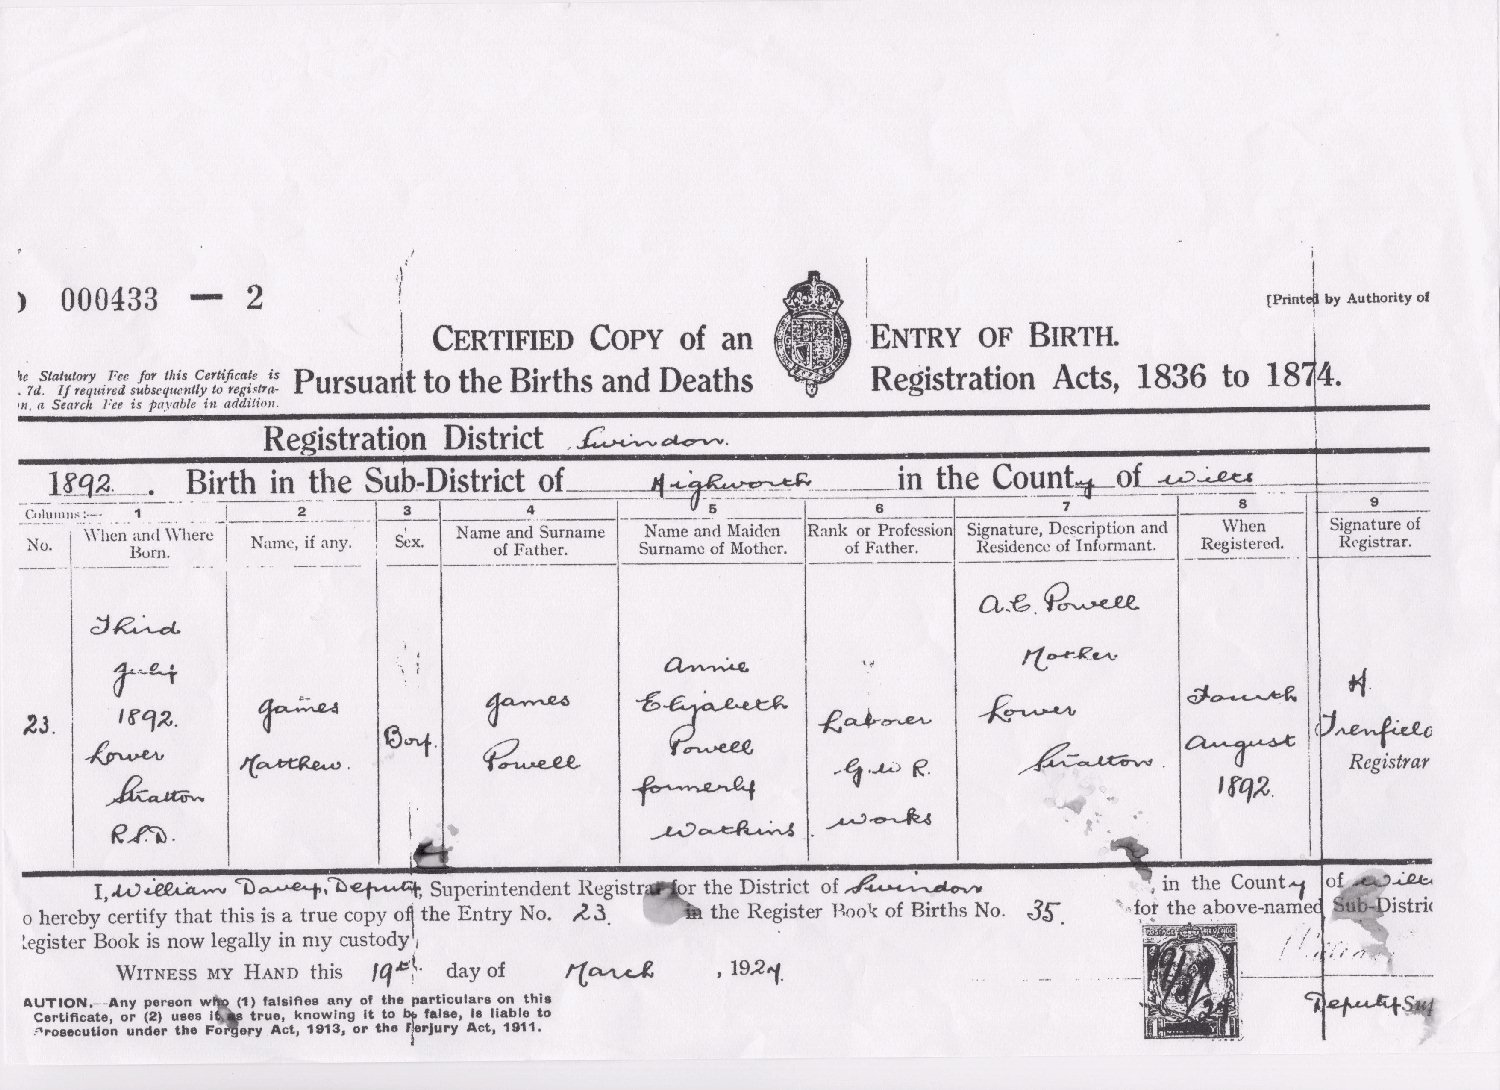 000433 — 2
[Printed by Authority of
CERTIFIED COPY of an ENTRY OF BIRTH.
he Statutory Fee for this Certificate is
. 7d. If required subsequently to registra-
n, a Search Fee is payable in addition.
Pursuant to the Births and Deaths Registration Acts, 1836 to 1874.
Registration District Swindon.
1892. Birth in the Sub-District of Highworth in the County of Wilts
Columns:— 1 2 3 4 5 6 7 8 9
No.
When and Where
Born.
Name, if any.
Sex.
Name and Surname
of Father.
Name and Maiden
Surname of Mother.
Rank or Profession
of Father.
Signature, Description and
Residence of Informant.
When
Registered.
Signature of
Registrar.
23.
Third
July
1892.
Lower
Stratton
R.S.D.
James
Matthew.
Boy.
James
Powell
Annie
Elizabeth
Powell
formerly
Watkins
Laborer
G.W.R.
Works
A.E. Powell
Mother
Lower
Stratton.
Fourth
August
1892.
H.
Trenfield
Registrar
I, William Davey, Deputy, Superintendent Registrar for the District of Swindon, in the County of Wilts
o hereby certify that this is a true copy of the Entry No. 23. in the Register Book of Births No. 35. for the above-named Sub-Distric
egister Book is now legally in my custody.
WITNESS MY HAND this 19th day of March, 1924.
AUTION.—Any person who (1) falsifies any of the particulars on this
Certificate, or (2) uses it as true, knowing it to be false, is liable to
Prosecution under the Forgery Act, 1913, or the Perjury Act, 1911.
19/3/24
Deputy Sup